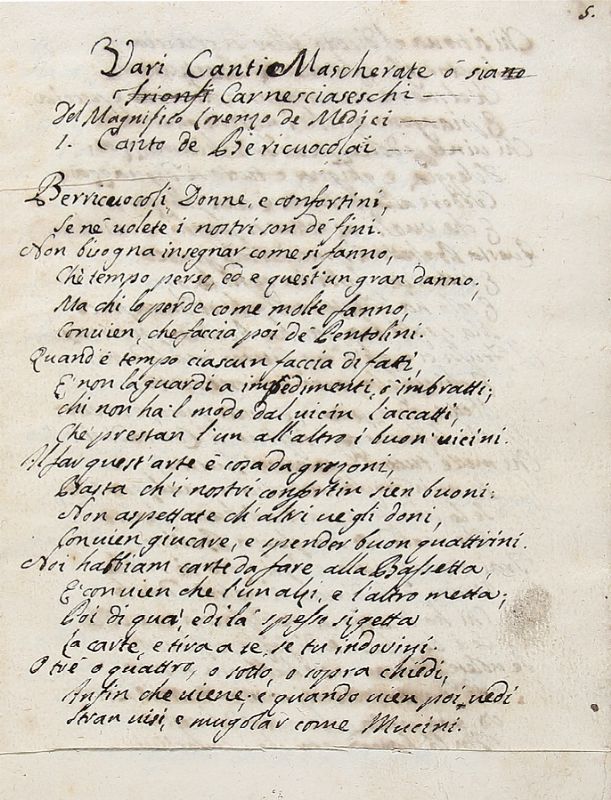 5.
Vari Canti o Mascherate ó siano
Trionfi Carnesciaseschi
Del Magnifico Lorenzo de Medici
1. Canto de Bericuocolai
Berricuocoli, Donne, e confortini,
Se né volete i nostri son dé fini.
Non bisogna insegnar come si fanno,
Ché tempo perso, ed e quest'un gran danno;
Ma chi lo perde come molte fanno,
Convien, che faccia poi dé Pentolini.
Quand'é tempo ciascun faccia di fatti,
E' non la guardi a impedimenti, o' imbratti;
chi non ha'l modo dal vicin l'accatti,
Che' prestan l'un all'altro i buon' vicini.
Il far quest'arte é cosa da grzoni,
Basta ch'i nostri confortin sien buoni:
Non aspettate ch'altri ve gli doni,
Convien giucare, e spender buon quattrini.
Noi habbiam carte da fare alla Bassetta,
E' convien che l'un alzi, e l'altro metta;
Poi di quá, e di lá spesso si getta
La carte, e tira a te, se tu indovini.
O tré o quattro, o sotto, o sopra chiedi,
Infin che viene; e quando vien poi, vedi
Stran visi, e mugolar come Mucini.